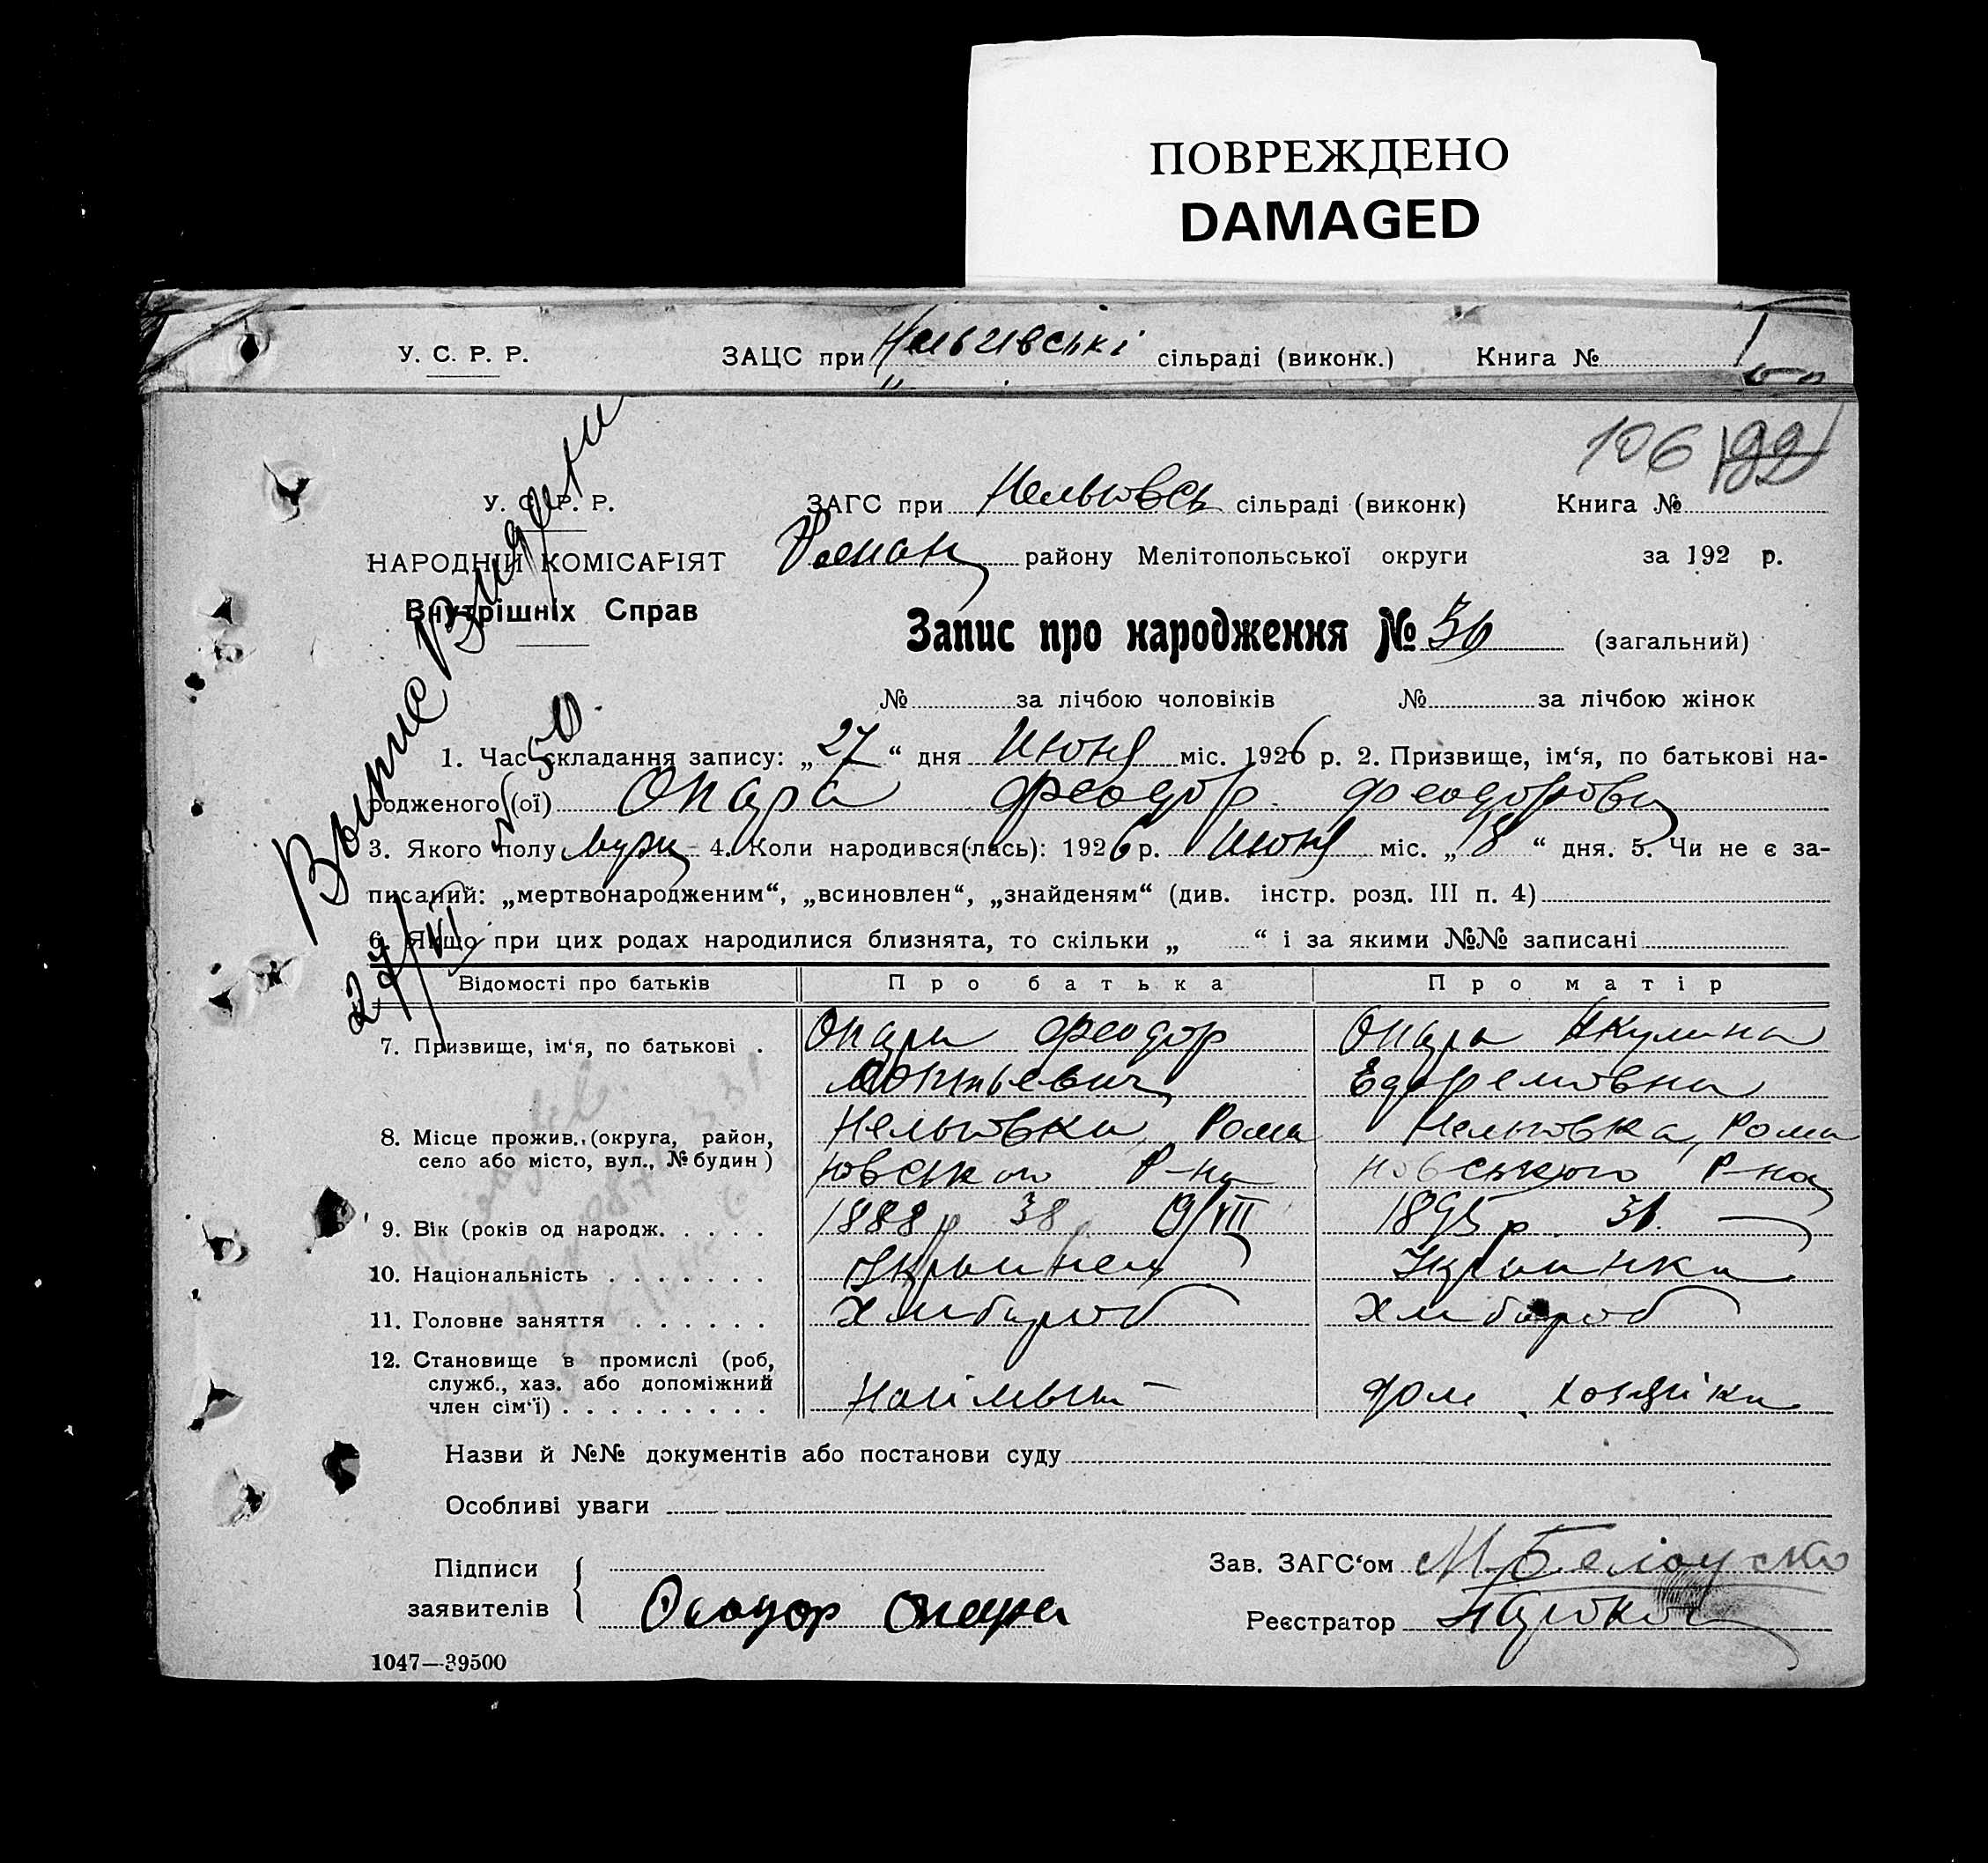 ПОВРЕЖДЕНО
DAMAGED
У. С. Р. Р. ЗАЦС при Нельгівські сільраді (виконк.) Книга №
106
У. С. Р. Р. ЗАГС при Нельговсь сільраді (виконк) Книга №
НАРОДНІЙ КОМІСАРІЯТ Роман району Мелітопольської округи за 192 р.
Внутрішніх Справ
Запис про народження № 36 (загальний)
№ за лічбою чоловіків № за лічбою жінок
Выпис Видати
№ 50.
1. Час складання запису: „27“ дня Июня міс. 1926 р. 2. Призвище, ім‘я, по батькові на-
родженого (ої) Опара Феодор Феодорович
3. Якого полу муж 4. Коли народився(лась): 1926 р. Июня міс. „18“ дня. 5. Чи не є за-
писаний: „мертвонародженим“, „всиновлен“, „знайденям“ (див. інстр. розд. III п. 4)
6. Якщо при цих родах народилися близнята, то скільки „ “ і за якими №№ записані
Відомості про батьків Про батька Про матір
7. Призвище, ім‘я, по батькові . Опара Феодор Опара Акулина
Леонтьевич
8. Місце прожив. (округа, район, Нельговка, Рома Нельговка, Рома
село або місто, вул., № будин) новського Р-на новського Р-на
9. Вік (років од народж. . . . . 1888 р 38 19/VIII 1895 р. 31.
10. Національність . . . . . . . Українец Українка
11. Головне заняття . . . . . . Хлибороб Хлибороб
12. Становище в промислі (роб,
служб., хаз. або допоміжний
член сім‘ї) . . . . . . . . . Наймыт дом. хозяйка
Назви й №№ документів або постанови суду
Особливі уваги
Підписи Зав. ЗАГС‘ом М. Белоуско
заявителів Феодор Опара Реєстратор
1047—39500